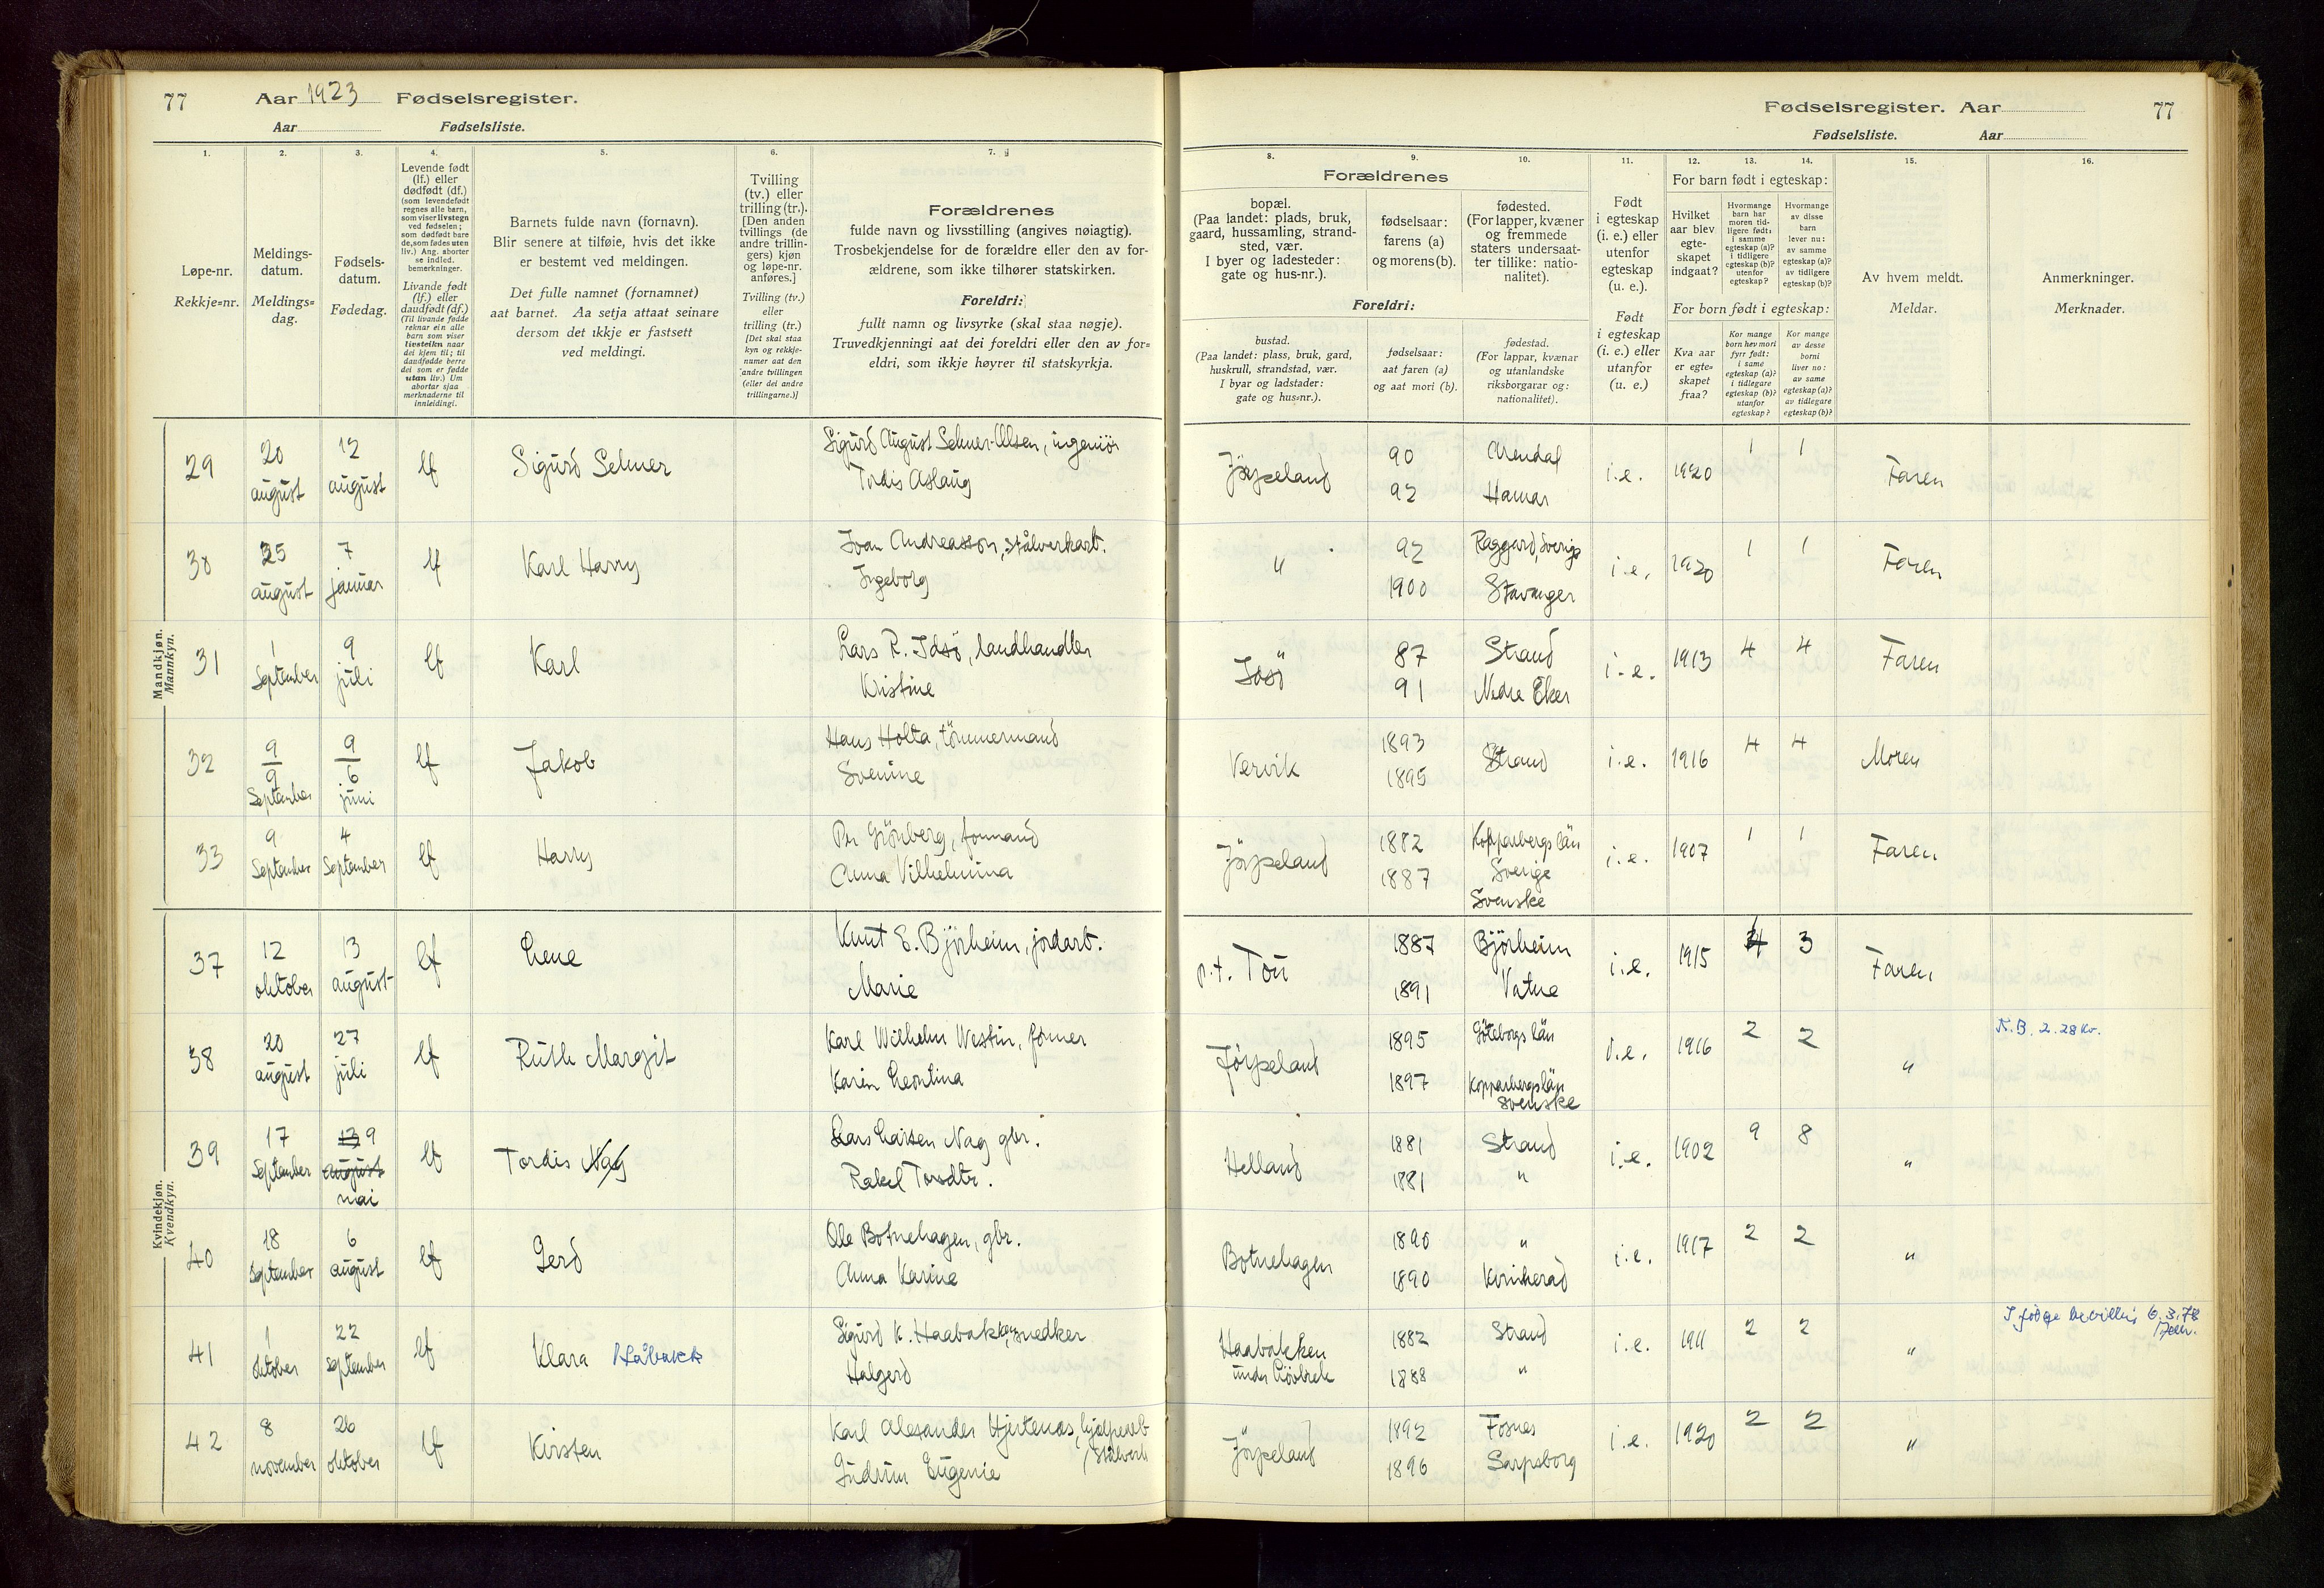 77 Aar 1923 Fødselsregister.
Aar Fødselsliste.
Fødselsregister. Aar 77
Fødselsliste. Aar
1. 2. 3. 4. 5. 6. 7. 8. 9. 10. 11. 12. 13. 14. 15. 16.
Løpe-nr.
Rekkje=nr.
Meldings-
datum.
Meldings=
dag.
Fødsels-
datum.
Fødedag.
Levende født
(lf.) eller
dødfødt (df.)
(som levendefødt
regnes alle barn,
som viser livstegn
ved fødselen;
som dødfødt bare
de, som fødes uten
liv.) Ang. aborter
se indled.
bemerkninger.
Livande født
(lf.) eller
daudfødt (df.)
(Til livande fødde
reknar ein alle
barn som viser
livsteikn naar
dei kjem til; til
daudfødde berre
dei som er fødde
utan liv.) Um
abortar sjaa
merknaderne til
innleidingi.
Barnets fulde navn (fornavn).
Blir senere at tilføie, hvis det ikke
er bestemt ved meldingen.
Det fulle namnet (fornamnet)
aat barnet. Aa setja attaat seinare
dersom det ikkje er fastsett
ved meldingi.
Tvilling
(tv.) eller
trilling (tr.).
[Den anden
tvillings (de
andre trillin-
gers) kjøn
og løpe-nr.
anføres.]
Tvilling (tv.)
eller
trilling (tr.)
[Det skal staa
kyn og rekkje-
numer aat den
andre tvillingen
(eller dei andre
trillingarne.)]
Forældrenes
fulde navn og livsstilling (angives nøiagtig).
Trosbekjendelse for de forældre eller den av for-
ældrene, som ikke tilhører statskirken.
Foreldri:
fullt namn og livsyrke (skal staa nøgje).
Truvedkjenningi aat dei foreldri eller den av for=
eldri, som ikkje høyrer til statskyrkja.
Forældrenes
bopæl.
(Paa landet: plads, bruk,
gaard, hussamling, strand-
sted, vær.
I byer og ladesteder:
gate og hus-nr.).
fødselsaar:
farens (a)
og morens (b).
fødested.
(For lapper, kvæner
og fremmede
staters undersaat-
ter tillike: natio-
nalitet).
Foreldri:
bustad.
(Paa landet: plass, bruk, gard,
huskrull, strandstad, vær.
I byar og ladstader:
gate og hus=nr.).
fødselsaar:
aat faren (a)
og aat mori (b).
fødestad.
(For lappar, kvænar
og utanlandske
riksborgarar og:
nationalitet).
Født
i egteskap
(i. e.) eller
utenfor
egteskap
(u. e.).
Født
i egteskap
(i. e.) eller
utanfor
(u. e.)
For barn født i egteskap:
Hvilket
aar blev
egte-
skapet
indgaat?
Hvormange
barn har
moren tid-
ligere født:
i samme
egteskap (a)?
i tidligere
egteskap (b)?
utenfor
egteskap?
Hvormange
av disse
barn
lever nu:
av samme
egteskap (a)?
av tidligere
egteskap (b)?
For born født i egteskap:
Kva aar
er egte=
skapet
fraa?
Kor mange
born hev mori
fyrr født:
i same
egteskap (a)?
i tidlegare
egteskap (b)?
utanfor
egteskap?
Kor mange
av desse
borni
liver no:
av same
egteskap (a)?
av tidlegare
egteskap (b)?
Av hvem meldt.
Meldar.
Anmerkninger.
Merknader.
Mandkjøn.
Mannkyn.
29 20 august 12 august lf Sigurd Selmer Sigurd August Selmer-Olsen, ingeniør
Tordis Aslaug Jørpeland 90 Arendal 92 Hamar i.e. 1920 1 1 Faren
30 25 august 7 januar lf Karl Harry Ivan Andreasson, stålverkarb.
Ingeborg " 92 Raggard, Sverige 1900 Stavanger i.e. 1920 1 1 Faren
31 1 September 9 juli lf Karl Lars R. Idsö, landhandler
Kristine Idsö 87 Strand 91 Nedre Eker i.e. 1913 4 4 Faren
32 9 9 September 9 6 juni lf Jakob Hans Holta, tömmermand
Svenine Vervik 1893 1895 Strand i.e. 1916 4 4 Moren
33 9 September 4 September lf Harry Per Grönberg, formand
Anna Vilhelmina Jörpeland 1882 1887 Kopparbergs län
Sverige
Svenske i.e. 1907 1 1 Faren
Kvindekjøn.
Kvendkyn.
37 12 oktober 13 august lf Lene Knut E. Björheim, jordarb.
Marie p.t. Tou 1887 Björheim 1891 Vatne i.e. 1915 4 3 Faren
38 20 august 27 juli lf Ruth Margit Karl Wilhelm Westin, former
Karin Leontina Jørpeland 1895 Göteborgs län 1897 Kopparbergslän
Svenske i.e. 1916 2 2 " K.B. 2. 28 kv.
39 17 September 13 9 august mai lf Tordis Nag Lars Larsen Nag gbr.
Rakel Torsdtr. Helland 1881 Strand 1881 " i.e. 1902 9 8 "
40 18 September 6 august lf Gerd Ole Botnehagen, gbr.
Anna Karine Botnehagen 1890 " 1890 Kvinherad i.e. 1917 2 2 "
41 1 oktober 22 September lf Klara Håbakk Sigurd K. Haabakken, snedker
Halgerd Haabakken
under 1882 Strand 1888 " i.e. 1911 2 2 " 6.3.78
42 8 november 26 oktober lf Kirsten Karl Alexander Hjertenæs, hjelpearb.
Stålverk
Gudrun Eugenie Jörpeland 1892 Fosnes 1896 Sarpsborg i.e. 1920 2 2 "